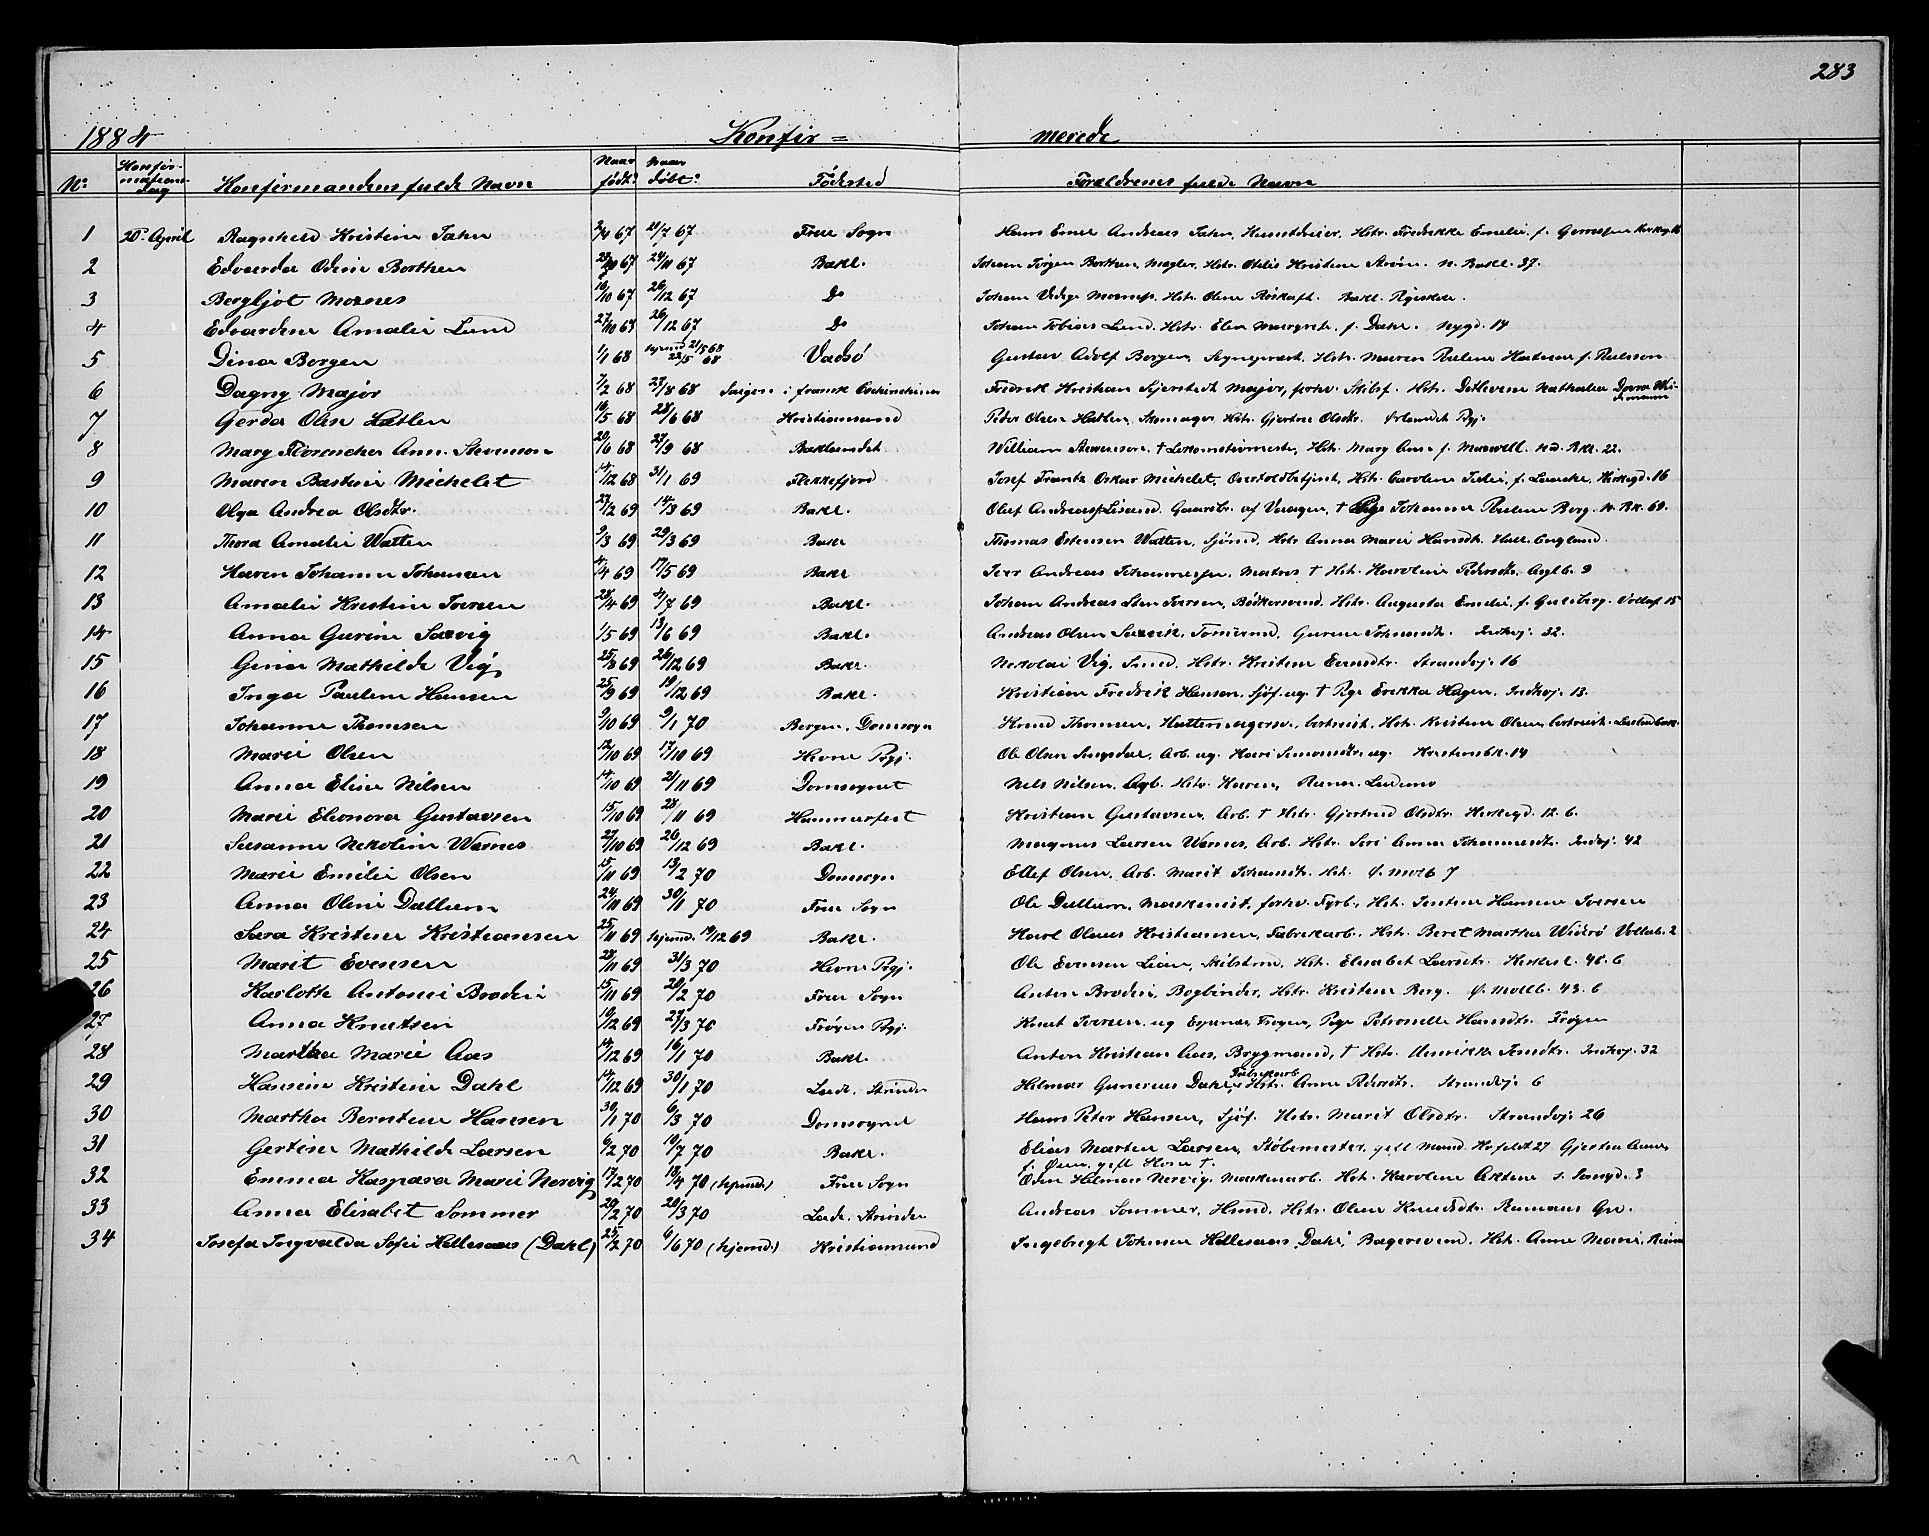 283
1884 Konfir= merede
No Konfir-mations Dag Konfirmandens fulde Navn Naar født? Naar døbt? Fødested Forældrenes fulde Navn
1 20 April Ragnhild Kristine Jahn 2/4 67 21/7 67 Frue Sogn Hans Emil Andreas Jahn, Kunstdreier, Hstr. Fredrikke Emelie f.
2 Edvarda Odine Borthen 67 24/11 67 Bakl. Johan Jørgen Borthen, Mægler, Hstr. Otelie Kristine Strøm. N. Bakl. 37.
3 Bergljot Moxnes 16/10 67 26/12 67 Do Johan Moxnes, Hstr. Oline Röskaft. Bakl.
4 Edvardine Amalie Lund 27/10 67 26/12 67 Do Johan Tobias Lund. Hstr. Elen Margrete f. Dahl. Nygd. 14
5 Dina Borgen 1/1 68 hjemd 21/5 68 22/5 68 Vadsö Gustav Adolf Borgen, Sognepræst, Hstr. Maren Pauline f. Paulsson
6 Dagny Major 7/2 68 27/8 68 Saigon i fransk Cochinchina Fredrik Kristian Sejersted Major, forhv. Skibsf. Hstr. Nathalia
7 Gerda Olin Hatlen 16/5 68 28/6 68 Kristiansund Peder Olsen Hatlen, Hstr. Gjertine Olsdtr. Ørlandet Pgj.
8 Mary Florencha Ann. Stevenson 20/6 68 27/9 68 Baklandet William Stevenson, † Lokomotivmester, Hstr. Mary Ann f. Maxwell. N.d. Bkl. 22.
9 Maren Bastine Michelet 14/12 68 31/1 69 Flekkefjord Josef Frantz Oskar Michelet, Overtoldbetjent, Hstr. Caroline Julie, f. Kirkegd. 16
10 Olga Andrea Olsdtr. 27/2 69 14/3 69 Bakl. Olaf Andreas Gaardbr. af † Pige Johanna Pauline Berg. N. Bk. 69.
11 Thora Amalie Watten 9/3 69 29/3 69 Bakl Thomas Estensen Watten, Sjömd, Hstr Anna Marie Hansdtr. Hull. England.
12 Karen Johanne Johansen 4/4 69 17/5 69 Bakl Iver Andreas Johannesen, Matros † Hstr. Karoline Pedersdtr. Aglb. 9
13 Amalie Kristine Iversen 28/4 69 4/7 69 Bakl. Johan Andreas Sten Iversen, Bödkersvend, Hstr. Augusta Emelie, f. Gulsberg. Vollaf. 15
14 Anna Gurine Saxvig 1/5 69 13/6 69 Bakl. Andreas Olsen Saxvik, Tömmerm, Gurine Johansdtr. Indhvj. 32.
15 Gina Mathilde Vig 25/8 69 26/12 69 Bakl. Nikolai Vig, Smed, Hstr. Kristine Strandvj. 16
16 Inga Pauline Hansen 25/9 69 19/12 69 Bakl. Kristian Fredrik Hansen, Sjöf. ug. † Pige Erikka Hagen, Indhvj. 13.
17 Johanne Thomsen 9/10 69 9/1 70 Bergen, Domsogn Knud Thomsen, Hattemagersv., Hstr. Kristine Olsen,
18 Marie Olsen 12/10 69 17/10 69 Hevne Pgj. Ole Olsen Arb. ug. Kari Simonsdtr. ug. Kristensbk. 14
19 Anna Elise Nilsen 14/10 69 21/11 69 Domsognet Nils Nilsen, Arb. Hstr. Karen,
20 Marie Eleonora Gustavsen 15/10 69 28/11 69 Hammerfest Kristian Gustavsen, Arb. † Hstr. Gjertrud Olsdtr. Kirkegd. 12. b.
21 Susanne Nikoline Warnes 27/10 69 26/12 69 Bakl. Magnus Larsen Warnes, Arb. Hstr. Siri Anna Johannesdtr. Indvj. 42
22 Marie Emilie Olsen 15/11 69 13/2 70 Domsogn Ellef Olsen, Arb. Marit Johansdtr. Hst. Ø. Molb 7
23 Anna Oline Dullum 24/11 69 30/1 70 Frue Sogn Ole Dullum, Maskinist, forhv. Fyrb., Hst. Hansine Iversen
24 Sara Kristine Kristiansen 25/11 69 hjemd. 19/12 69 Bakl. Karl Olaus Kristiansen, Fabrikarb. Hst. Beret Martha Vollab. 2
25 Marit Evensen 28/11 69 31/3 70 Hevne Pgj. Ole Evensen Lian, Hst. Elisabet Larsdtr.
26 Karlotte Antonie Brodin 15/11 69 20/2 70 Frue Sogn Anton Brodin, Bogbinder, Hstr. Kristine Berg. Ø. Mollb. 43. b
27 Anna Knutsen 10/12 69 27/3 70 Fröyen Pgj. Knut Iversen ug Pige Petronelle Hansdtr. Fröyen
28 Martha Marie Aas 14/12 69 16/1 70 Bakl. Anton Kristian Aas, Brygmand, † Hst. Ulrikke Indhvj. 32
29 Hansine Kristine Dahl 14/12 69 30/1 70 Lade. Strinden Hilmar Gunerius Dahl, Fabrikarb. Hstr. Anne Pedersdtr. Strandvj. 6
30 Martha Berntine Hansen 30/1 70 6/3 70 Domsognet Hans Peter Hansen, Sjöf. Hstr. Marit Olsdtr. Strandvj. 26
31 Gertine Mathilde Larsen 6/2 70 10/7 70 Bakl. Elias Martin Larsen, Støbemester, gift Mand
f. gift Kone †.
32 Emma Kaspara Marie Nervig 17/2 70 18/4 70 (hjemd.) Frue Sogn Oden Hilmar Nervig. Maskinarb. Hst. Karoline 3
33 Anna Elisabet Sommer 20/2 70 20/3 70 Lade. Strinden Andreas Sommer, Hsmd. Hstr. Oline Knudsdtr.
34 Josefa Ingvalda Sofie Hellesaas (Dahl) 25/2 70 6/6 70 (hjemd.) Kristiansund Ingebrigt Johnsen Hellesaas, Dahl, Bagersvend. Hst. Anne Marie,